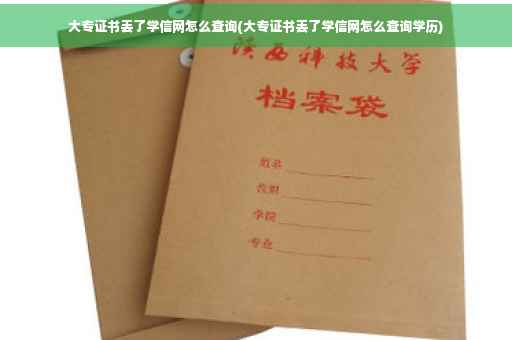 大专证书丢了学信网怎么查询(大专证书丢了学信网怎么查询学历)
陕西科技大学
档案袋
姓名
学院
专业